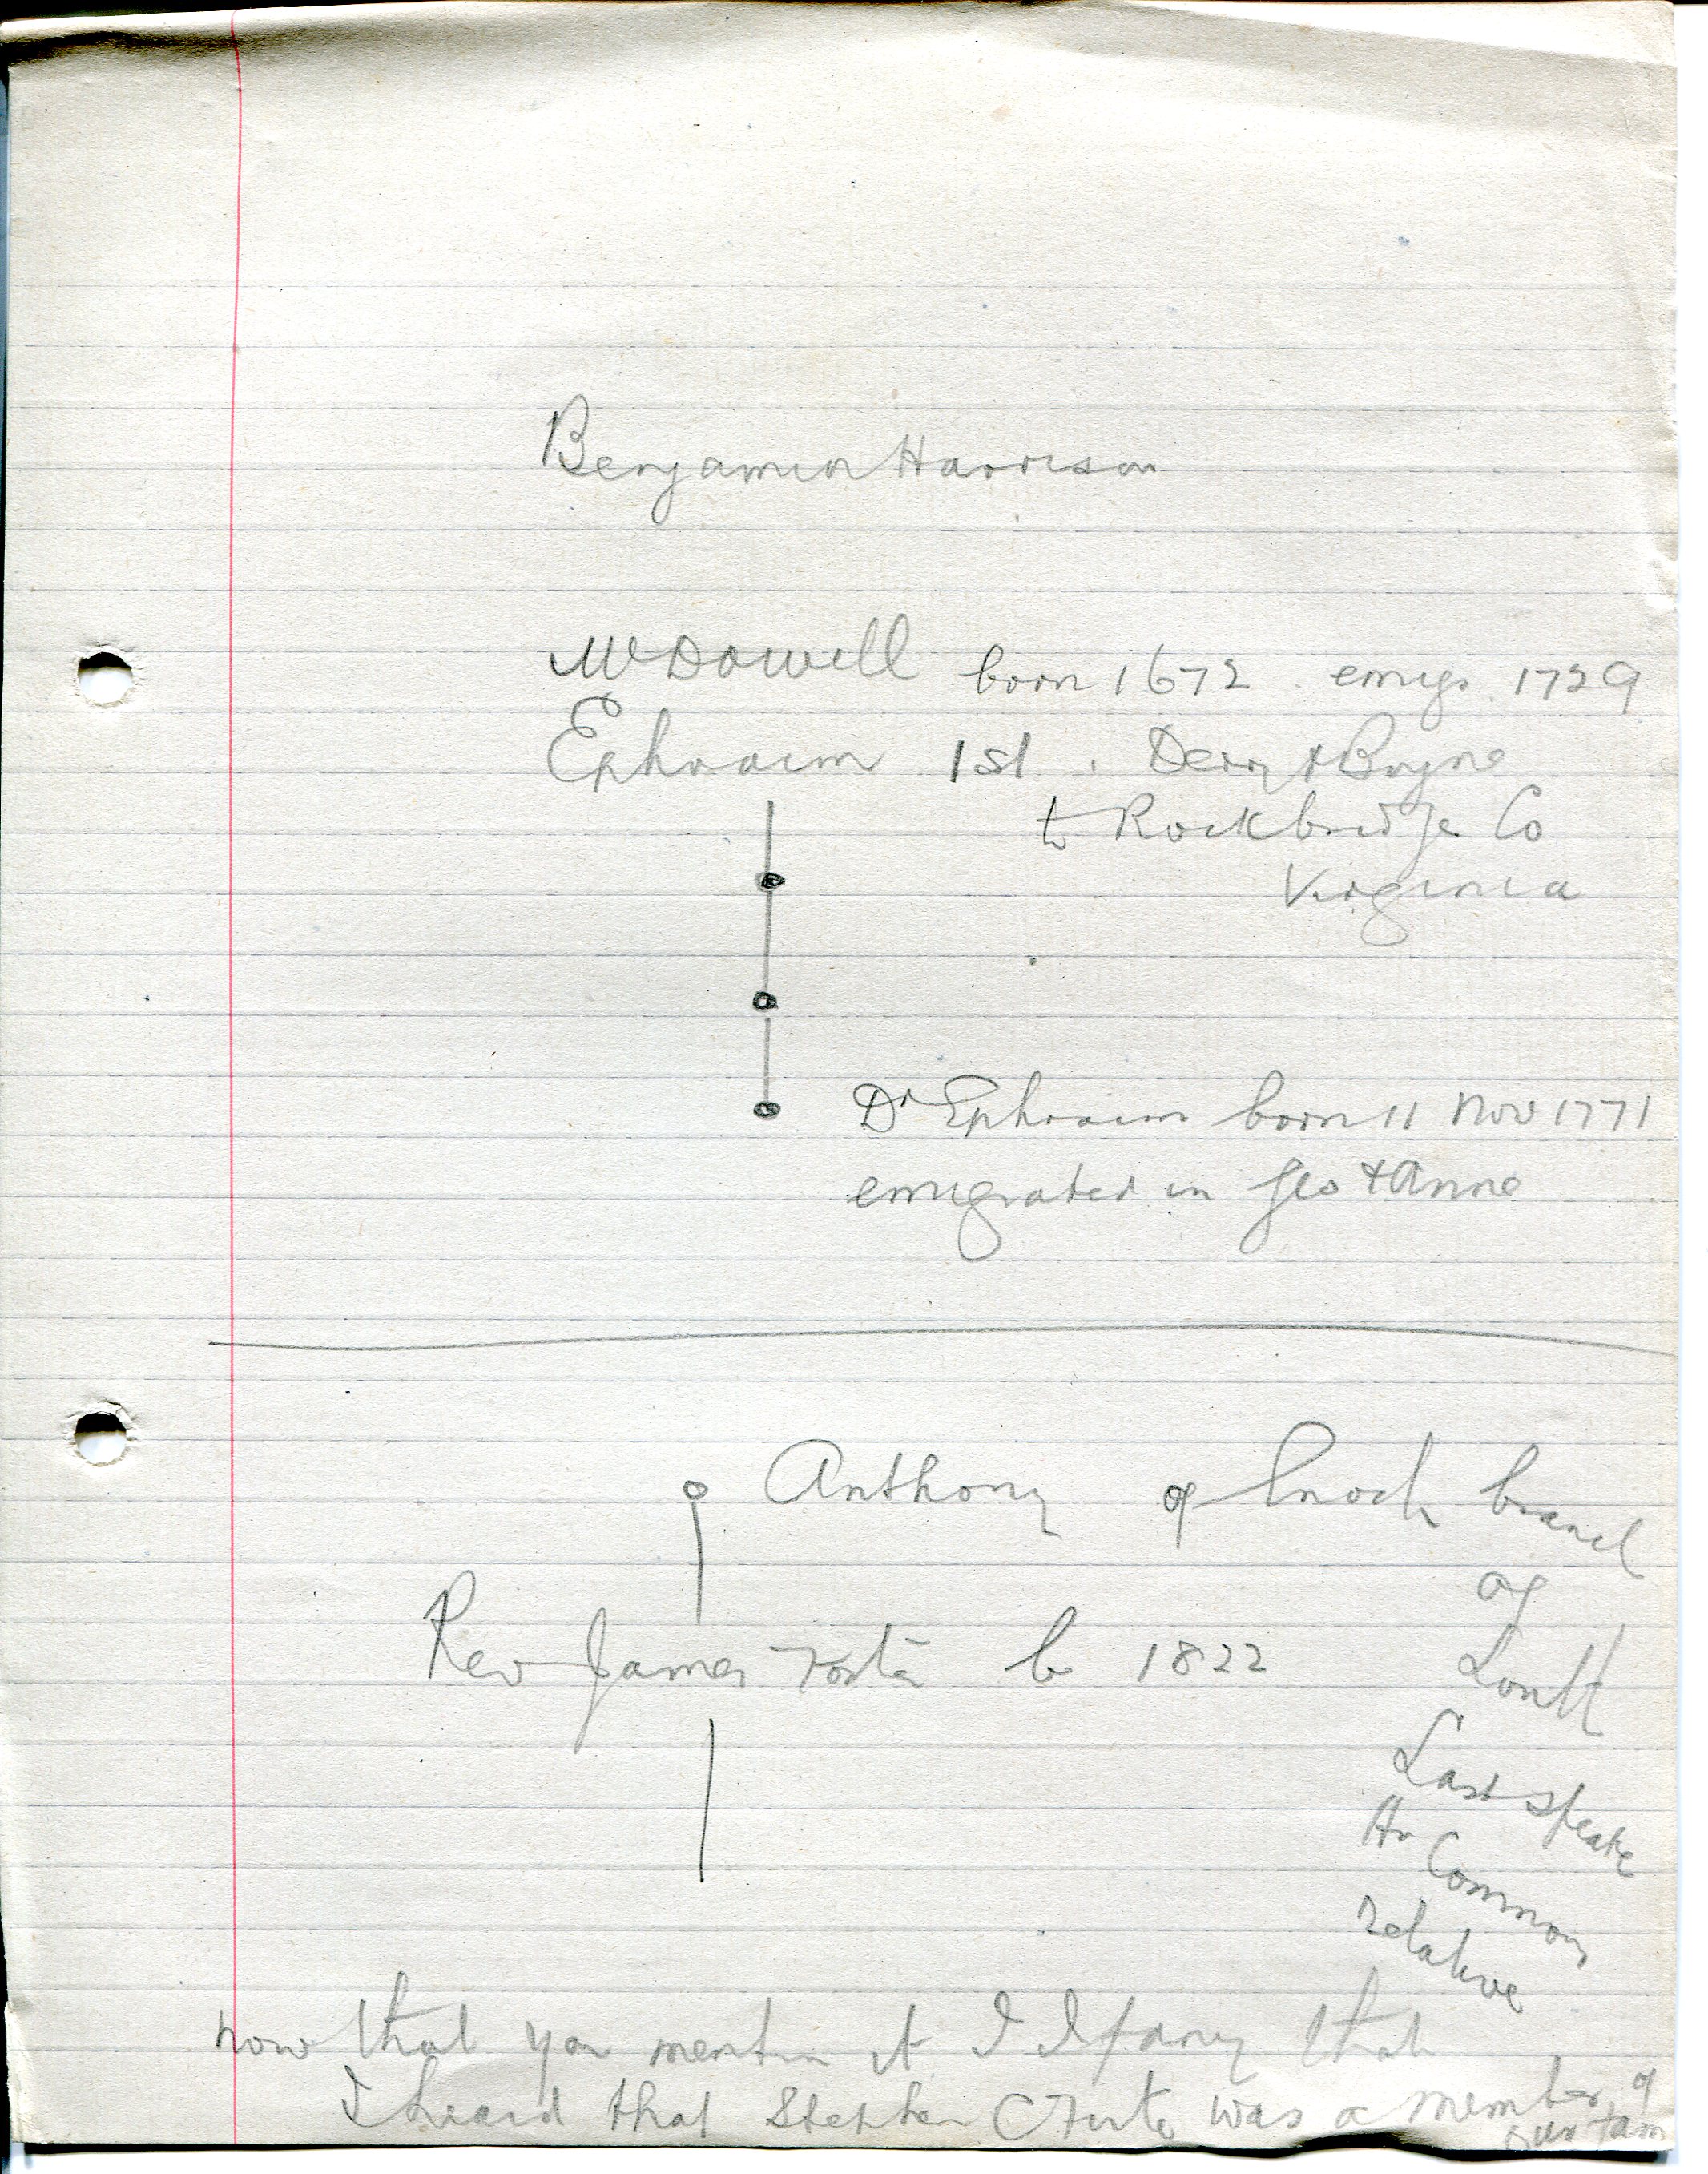 Benjamin Harrison
McDowell born 1672. emigr. 1729
Ephraim 1st. Derry & Boyne
to Rockbridge Co
Virginia
Dr Ephraim born 11 Nov 1771
emigrated in Geo & Anne
Anthony of Enoch branch
of
Rev James Foster b 1822
Last Speake
Hr Common
relative
now that you mention it I fancy that
I heard that Stephen C Foster was a member of
our fam